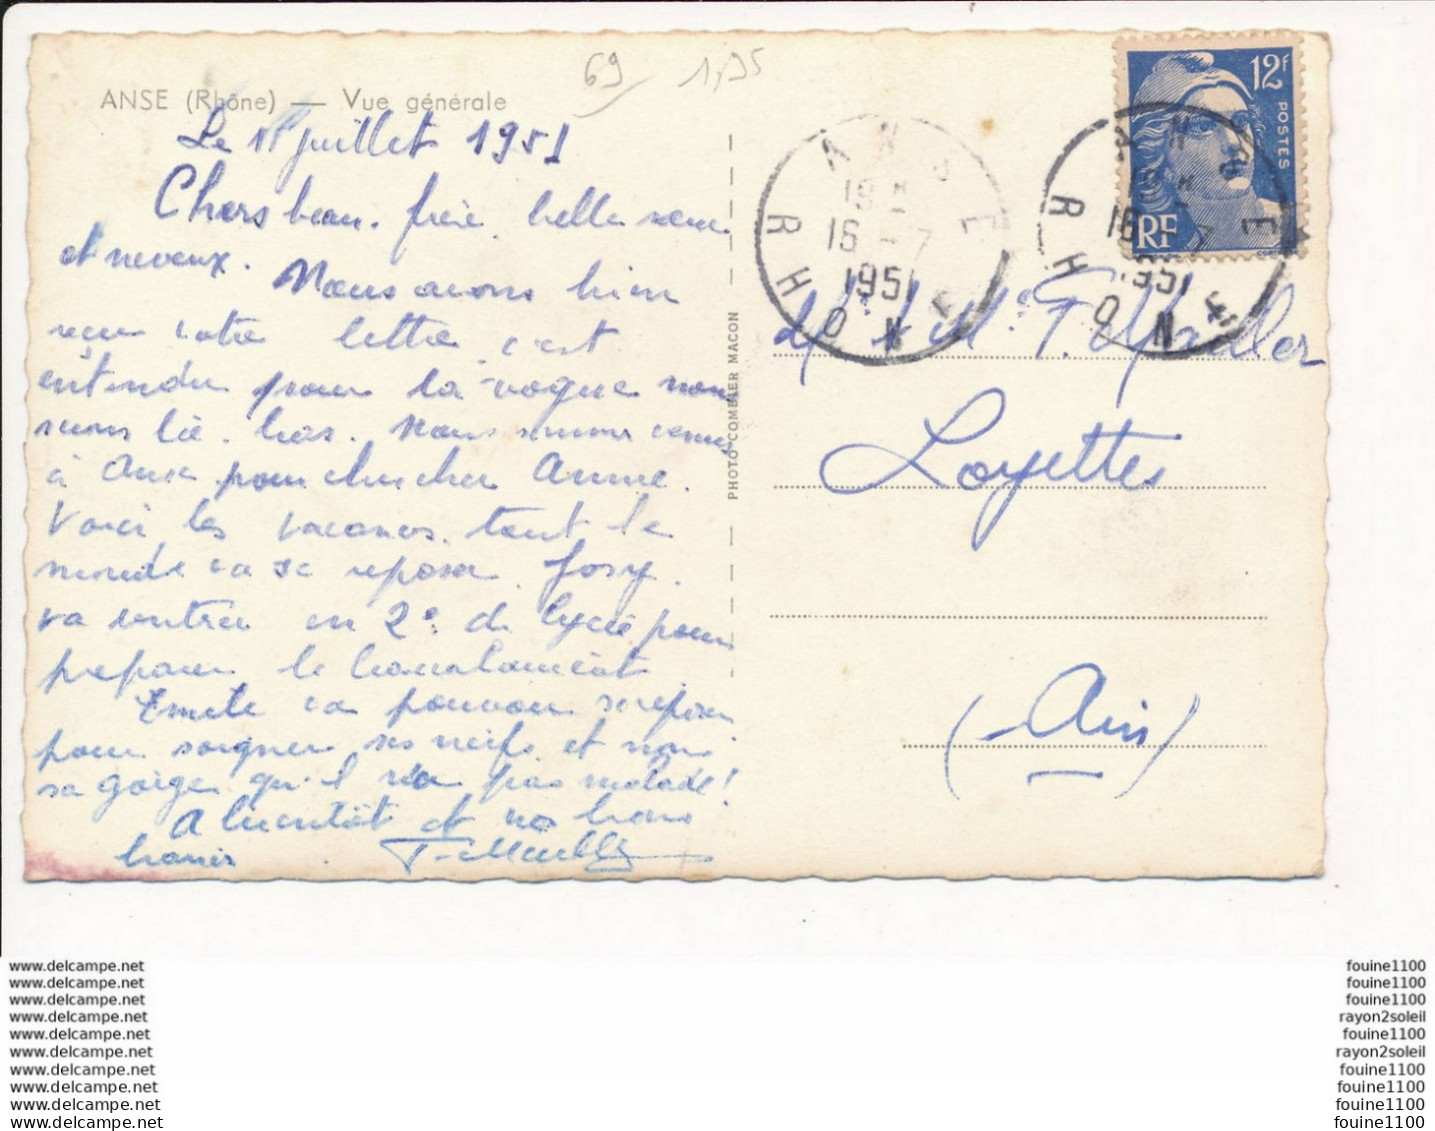 ANSE (Rhône) — Vue générale
69 1,95
Le juillet 1951
Chers beau-frère, belle soeur
et neveux. Nous avons bien
reçu votre lettre c'est
entendu pour la vogue nous
serons là-bas. Nous sommes venus
à Anse pour chercher Annie.
Voici les vacances tout le
monde va se reposer Josy.
va rentrer en 2e de lycée pour
preparer le baccalaureat
Emile va pouvoir se reposer
pour soigner ses nerfs et nous
sa gorge qu'il n'a pas malade!
A bientôt et nos bons
baisers
PHOTO COMBIER MACON
ANSE
RHONE
16 - 7
1951
ANSE
RHONE
16 - 7
1951
12F
POSTES
RF
Mr & Me T.
Loyettes
(Ain)
www.delcampe.net
www.delcampe.net
www.delcampe.net
www.delcampe.net
www.delcampe.net
www.delcampe.net
www.delcampe.net
www.delcampe.net
www.delcampe.net
www.delcampe.net
fouine1100
fouine1100
fouine1100
rayon2soleil
fouine1100
rayon2soleil
fouine1100
fouine1100
fouine1100
fouine1100